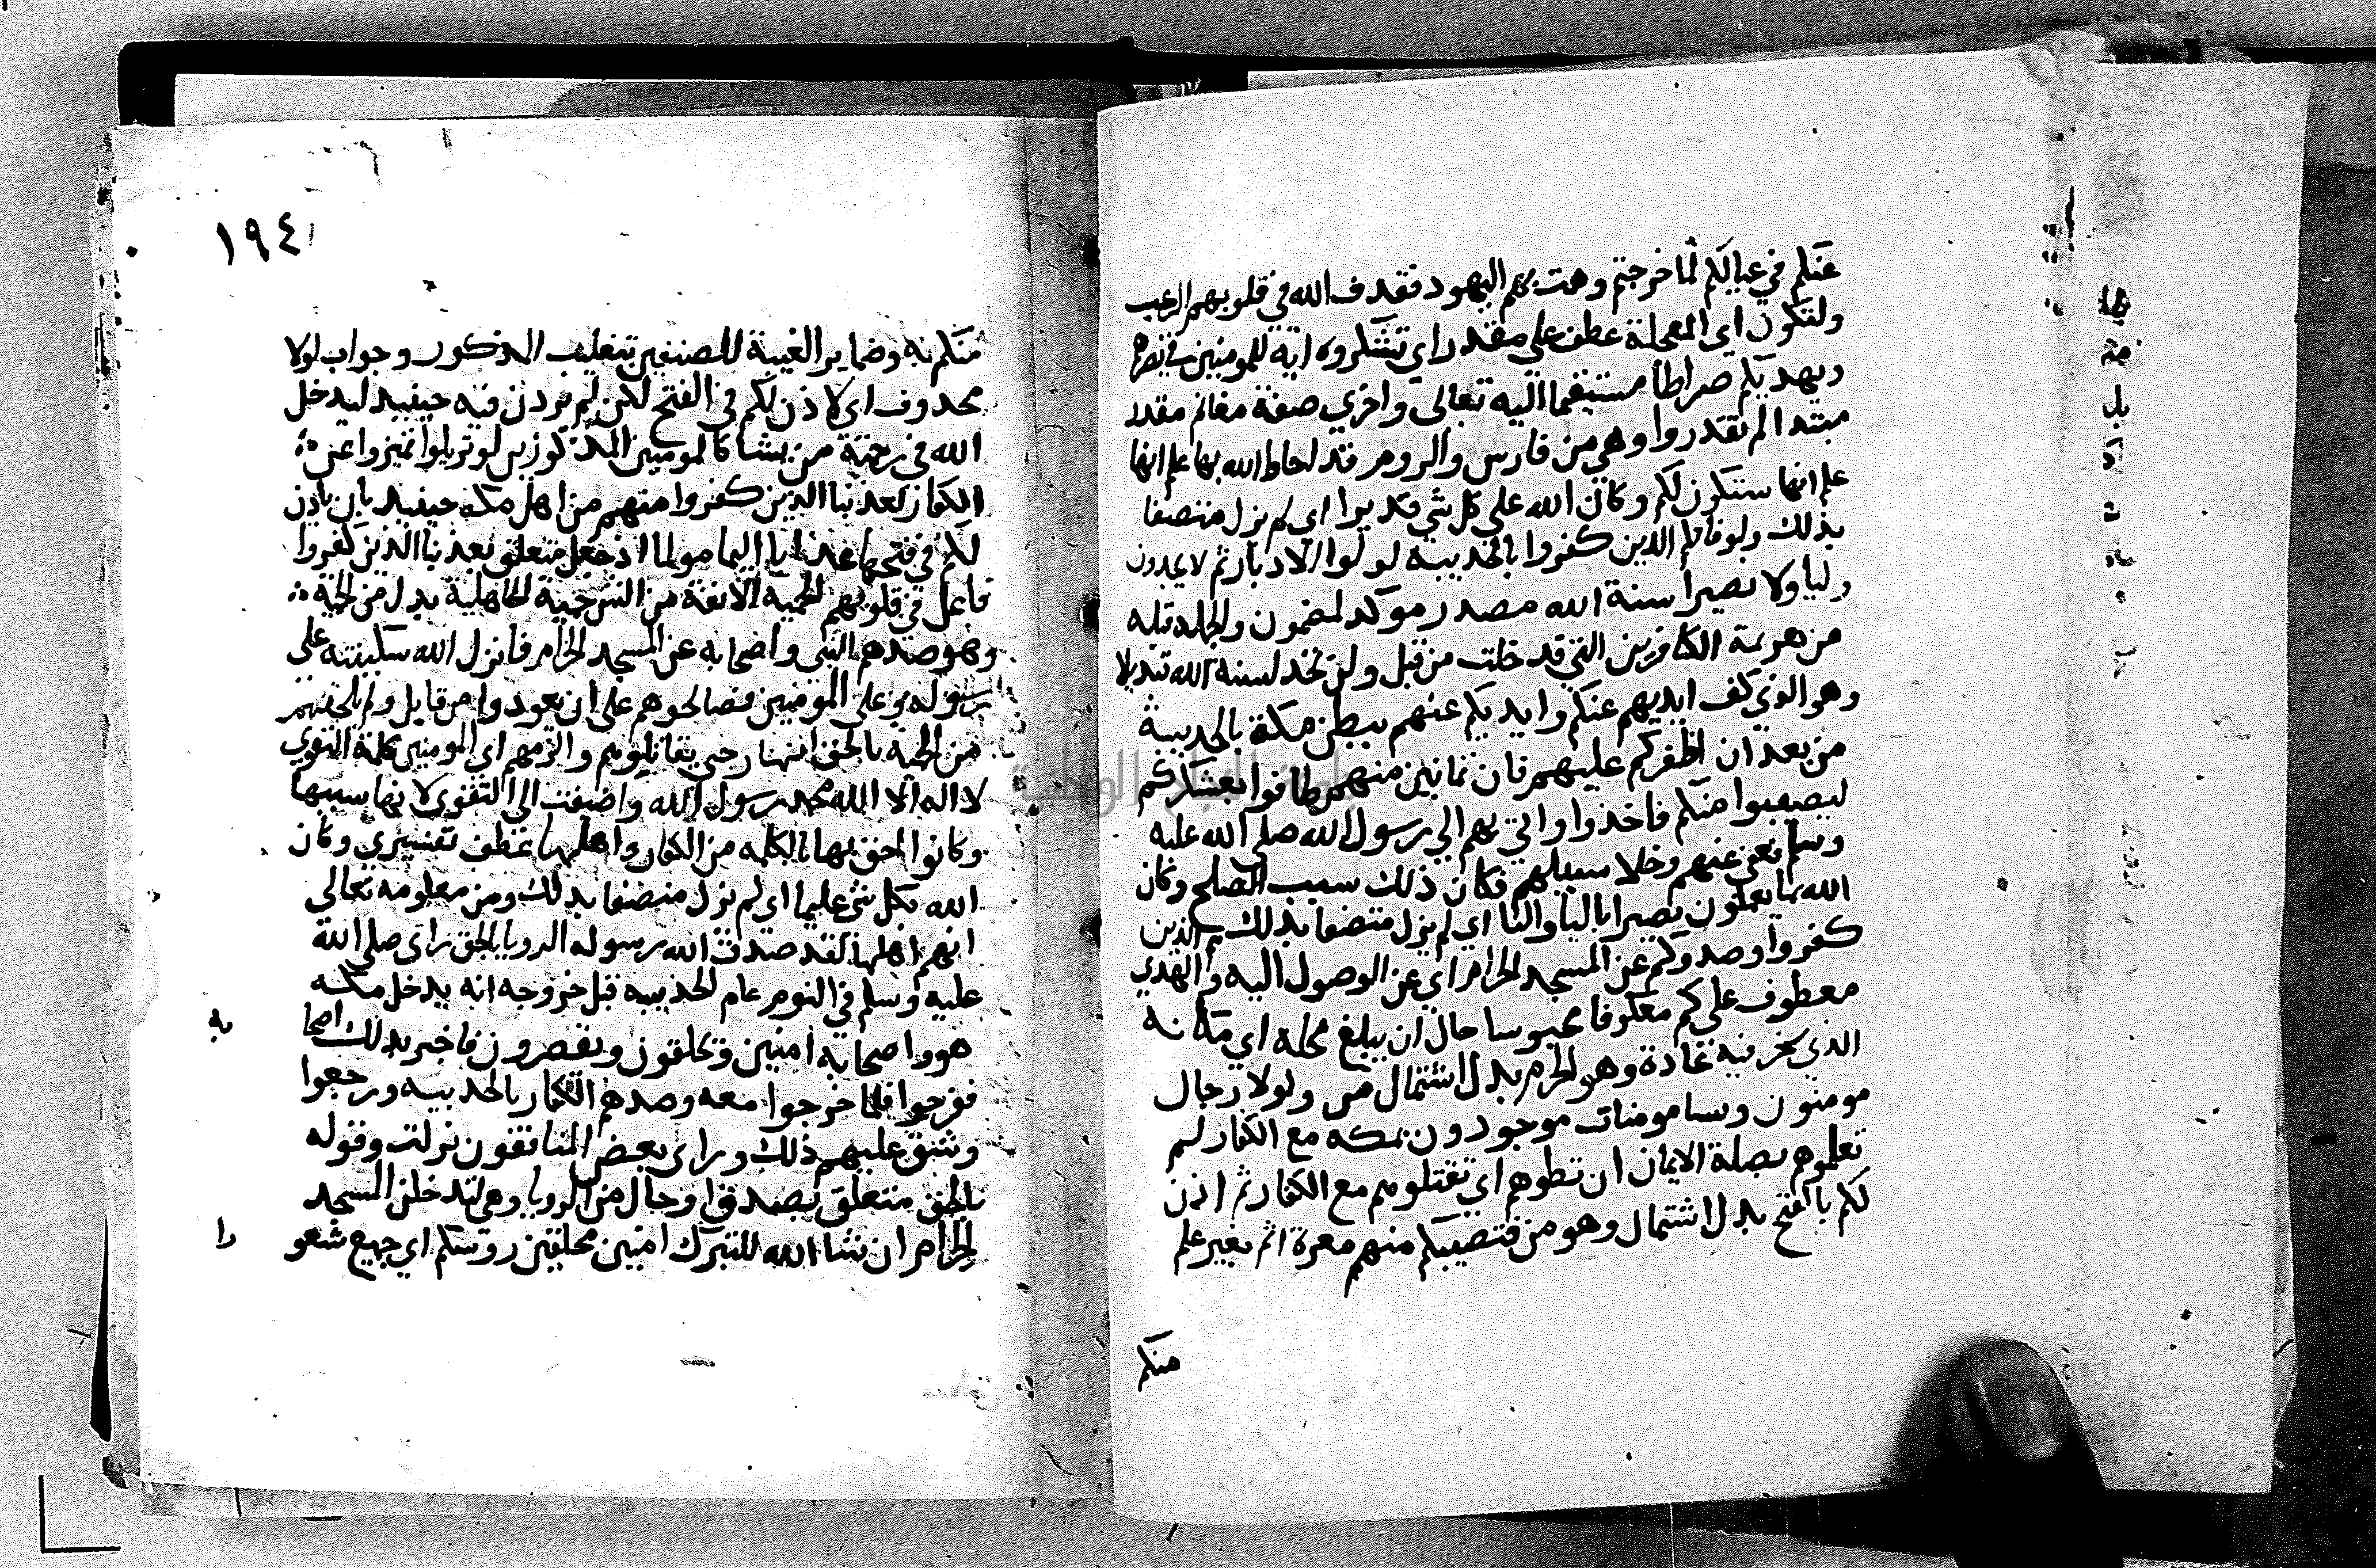 عنكم في عيالكم لما خرجتم وهمت بهم اليهود فقدف الله في قلوبهم الرعب
ولتكون اي المعجلة عطف علي مقدر اي تشكروه اية للمومنين في نصرهم
ويهديكم صراطا مستقيما اليه تعالى واخري صفة مغانم مقدر
مبتدا لم تقدروا وهي من فارس والروم قد احاط الله بها علم انها
علم انها ستكون لكم وكان الله علي كل شي قديرا اي لم يزل متصفا
بذلك ولو قاتلكم الذين كفروا بالحديبية لولوا الادبار ثم لا يجدون
وليا ولا نصيرا سنة الله مصدر موكد لمضمون والجمله قبله
من هزيمة الكافرين التي قد خلت من قبل ولن تجد لسنة الله تبديلا
وهو الذي كف ايديهم عنكم وايديكم عنهم ببطن مكة بالحديبية
من بعد ان اظفركم عليهم فان ثمانين منهم طافوا بعسكركم
ليصيبوا منكم فاخذوا واتي بهم الي رسول الله صلى الله عليه
وسلم فعفى عنهم وخلا سبيلهم فكان ذلك سبب الصلح وكان
الله بما يعملون بصيرا باليا والتا اي لم يزل متصفا بذلك هم الذين
كفروا وصدوكم عن المسجد الحرام اي عن الوصول اليه والهدي
معطوف علي كم معكوفا محبوسا حال ان يبلغ محله اي مكانه
الذي ينحر فيه عادة وهو الحرم بدل اشتمال من ولولا رجال
مومنون ونسا مومنات موجودون بمكه مع الكفار لم
تعلموهم بصلة الايمان ان تطوهم اي تقتلوهم مع الكفار ثم اذن
لكم بالفتح بدل اشتمال وهو من فتصيبكم منهم معرة اثم بغير علم
منكم
١٩٤
منكم به وضماير الغيبة للصنفين بتغليب الذكور وجواب لولا
محدوف اي لاذن لكم في الفتح لكن لم يوذن فيه حينيد ليدخل
الله في رحمته من يشا كالمومنين المذكورين لو تزيلوا تميزوا عن
الكفار لعذبنا الذين كفروا منهم من اهل مكه حينيد بان ياذن
لكم في فتحها عذابا اليما مولما اذ جعل متعلق بعذبنا الذين كفروا
فاعل في قلوبهم الحمية الانفة من الشي حمية الجاهلية بدل من الحمية
وهو صدهم النبي واصحابه عن المسجد الحرام فانزل الله سكينته على
رسوله وعلى المومنين فصالحوهم على ان يعودوا من قابل ولم يلحقهم
من الحمية ما لحق الكفار حتى يقاتلوهم والزمهم اي المومنين كلمة التقوي
لا اله الا الله محمد رسول الله واضيفت الي التقوى لانها سببها
وكانوا احق بها بالكلمه من الكفار واهلها عطف تفسيري وكان
الله بكل شي عليما اي لم يزل متصفا بذلك ومن معلومه تعالى
انهم اهلها لقد صدق الله رسوله الرويا بالحق راى صلى الله
عليه وسلم في النوم عام الحديبية قبل خروجه انه يدخل مكه
هو واصحابه امنين ويحلقون ويقصرون فاخبر بذلك اصحا
به
ففرحوا فلما خرجوا معه وصدهم الكفار بالحديبيه ورجعوا
وشق عليهم ذلك وراى بعض المنافقون نزلت وقوله
بالحق متعلق بصدق او حال من الرويا وهي لتدخلن المسجد
الحرام ان شا الله للتبرك امنين محلقين روسكم اي جميع شعو
را